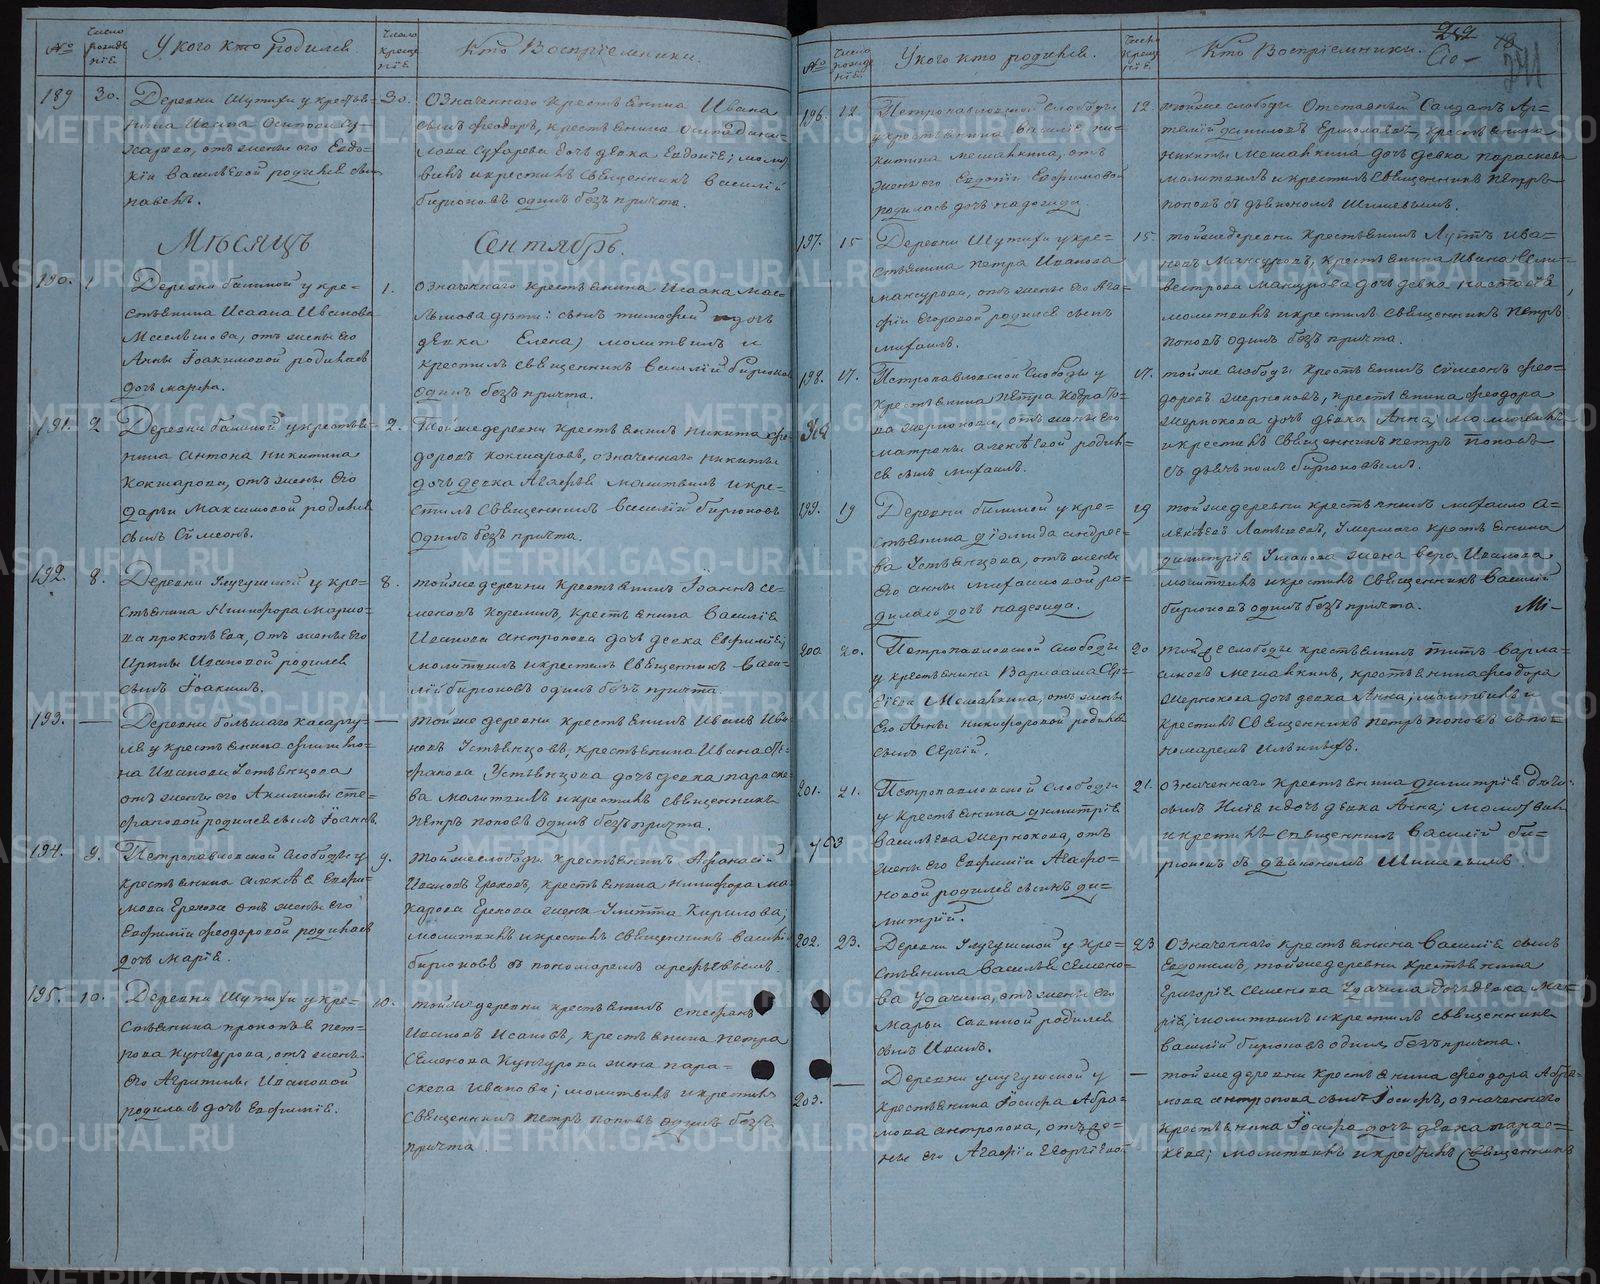 №
Число рождѣнiѣ.
У кого кто родилсѣ
Число крещенiѣ.
Кто Воспрiѣмники.
189
30.
Деревни Шутихи у крестьѣ=
нина Исаака Осипова Су=
харева, отъ жены его Евдо=
кiи Васильѣвой родилсѣ сынъ
павелъ.
30.
Означеннаго крестьѣнина Ивана
сынъ феодоръ, крестьѣнина
Сухарева дочь дѣвка Евдокiѣ;
вилъ и крестилъ Свѣщенникъ Василiй
бирюковъ одинъ безъ причта.
Мѣсяцъ Сентябрь.
190.
1
Деревни башной у кре=
стьѣнина Исаака Иванова
отъ жены его
Анны Iоакимовой родиласѣ
дочь марѳа.
1.
Означеннаго крестьѣнина Исаака
дѣти: сынъ тимофей и дочь
дѣвка Елена, молитвилъ и
крестилъ свѣщенникъ Василiй бирюковъ
одинъ безъ причта.
191.
2
Деревни башной у крестьѣ=
нина антона никитина
Кокшарова, отъ жены его
дарьи Максимовой родилсѣ
сынъ Сiмеонъ.
2.
Той же деревни крестьѣнинъ никита фе=
доровъ кокшаровъ, означеннаго никиты
дочь дѣвка Агафьѣ молитвилъ и кре=
стилъ Свѣщенникъ Василiй бирюковъ
одинъ безъ причта.
192.
8.
Деревни у кре=
стьѣнина Никифора марко=
ва прокопьѣва, отъ жены его
Ирины Ивановой родилсѣ
сынъ Iоакимъ.
8.
той же деревни крестьѣнинъ Iоаннъ се=
меновъ Корелинъ, крестьѣнина Василiѣ
Иванова антропова дочь дѣвка Евфимiѣ;
молитвилъ и крестилъ Свѣщенникъ Васи=
лiй бирюковъ одинъ безъ причта.
193.
—
Деревни большаго касаргу=
лѣ у крестьѣнина
Иванова Устьѣнцова
отъ жены его Акилины сте=
фановой родилсѣ сынъ Iоаннъ.
—
той же деревни крестьѣнинъ Иванъ Ива=
новъ Устьѣнцовъ, крестьѣнина Ивана
Устьѣнцова дочь дѣвка параске=
ва молитвилъ и крестилъ свѣщенникъ
пѣтръ поповъ одинъ безъ причта.
194.
9.
Пѣтропавловской Слободы у
крестьѣнина алексѣѣ Евфи=
мова Ерехова отъ жены его
Евфимiи феодоровой родиласѣ
дочь марiѣ.
9.
той же слободы крестьѣнинъ Афанасiй
Ивановъ Ереховъ, крестьѣнина никифора ма=
карова Ерехова жена Улитта Кирилова;
молитвилъ и крестилъ свѣщенникъ Василiй
бирюковъ съ пономаремъ арефьѣвымъ.
195.
10.
Деревни Шутихи у кре=
стьѣнина прокопьѣ пет=
рова Кунгурова, отъ жены
его Агрипины Ивановой
родиласѣ дочь Евфимiѣ.
10.
той же деревни крестьѣнинъ стефанъ
Ивановъ Исаковъ, крестьѣнина петра
Семенова Кунгурова жена пара=
скева Иванова; молитвилъ и крестилъ
свѣщенникъ пѣтръ поповъ одинъ безъ
причта.
№
Число рождѣнiѣ.
У кого кто родилсѣ.
Число крещенiѣ.
Кто Воспрiѣмники.
241
196.
12
Пѣтропавловской Слободы
у крестьѣнина Василiѣ ни=
китина мешавкина, отъ
жены его Евдокiи Евфимовой
родиласѣ дочь надежда.
12.
той же слободы Отставный Салдатъ Ар=
темiй Ермолаевъ, крестьѣнина
никиты мешавкина дочь дѣвка параскева
молитвилъ и крестилъ Свѣщенникъ пѣтръ
поповъ съ дьѣкономъ Шишевымъ.
197.
15
Деревни Шутихи у кре=
стьѣнина петра Иванова
мансурова, отъ жены его Ага=
фiи Егоровой родилсѣ сынъ
михаилъ.
15.
той же деревни крестьѣнинъ Ива=
новъ Мансуровъ, крестьѣнина Ивана Сели=
вестрова мансурова дочь дѣвка настасьѣ,
молитвилъ и крестилъ Свѣщенникъ пѣтръ
поповъ одинъ безъ причта.
198.
17.
Пѣтропавловской Слободы у
крестьѣнина пѣтра
жернокова, отъ жены его
матрены алексѣевой родил=
сѣ сынъ михаилъ.
17.
той же слободы крестьѣнинъ симеонъ фео=
доровъ жерноковъ, крестьѣнина феодора
жернокова дочь дѣвка Анна; молитвилъ
и крестилъ Свѣщенникъ пѣтръ поповъ
съ дьѣкономъ бирюковымъ.
199.
19
Деревни башной у кре=
стьѣнина дiомида андрее=
ва Устьѣнцова, отъ жены
его анны михаиловой ро=
дилась дочь надежда.
19
той же деревни крестьѣнинъ михаило а=
лексѣевъ Латышевъ, умершаго крестьѣнина
димитрiѣ жена вера Иванова
молитвилъ и крестилъ Свѣщенникъ Василiй
бирюковъ одинъ безъ причта.
200.
20.
Пѣтропавловской Слободы
у крестьѣнина Варлаама Сер=
гiева Мешавкина, отъ жены
его Анны никифоровой родилсѣ
сынъ Сергiй.
20
той же слободы крестьѣнинъ титъ варла=
амовъ мешавкинъ, крестьѣнина феодора
жернокова дочь дѣвка Анна; молитвилъ и
крестилъ Свѣщенникъ пѣтръ поповъ съ по=
номаремъ
201.
21.
Пѣтропавловской Слободы
у крестьѣнина димитрiѣ
васильѣва жернокова, отъ
жены его Евфимiи Агафо=
новой родилсѣ сынъ ди=
митрiй.
21.
означеннаго крестьѣнина димитрiѣ дѣти:
сынъ и дочь дѣвка Анна; молитвилъ
и крестилъ свѣщенникъ Василiй би=
рюковъ съ дьѣкономъ Шишевымъ.
202.
23.
Деревни у кре=
стьѣнина Васильѣ Семено=
ва Удачина, отъ жены его
Марьи Савиной родилсѣ
сынъ Иванъ.
23
Означеннаго крестьѣнина Василiѣ сынъ
Евдокимъ, той же деревни крестьѣнина
Григорiѣ Семенова Удачина дочь дѣвка Ма=
рiѣ; молитвилъ и крестилъ свѣщенникъ
Василiй бирюковъ одинъ безъ причта.
203.
—
Деревни у
крестьѣнина Iосифа Абра=
мова антропова, отъ же=
ны его Агафiи Георгiевой
—
той же деревни крестьѣнина феодора Абра=
мова антропова сынъ Iосифъ, означеннаго
крестьѣнина Iосифа дочь дѣвка парас=
кева; молитвилъ и крестилъ Свѣщенникъ
METRIKI.GASO-URAL.RU